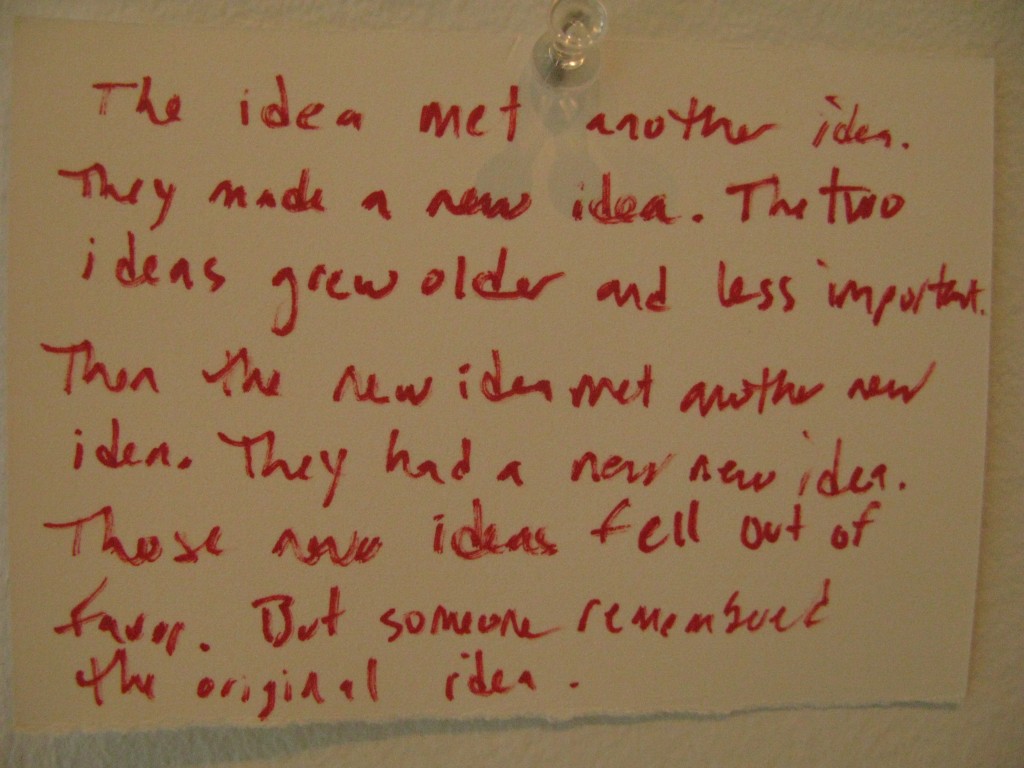 The idea met another idea.
They made a new idea. The two
ideas grew older and less important.
Then the new idea met another new
idea. They had a new new idea.
Those new ideas fell out of
favor. But someone remembered
the original idea.